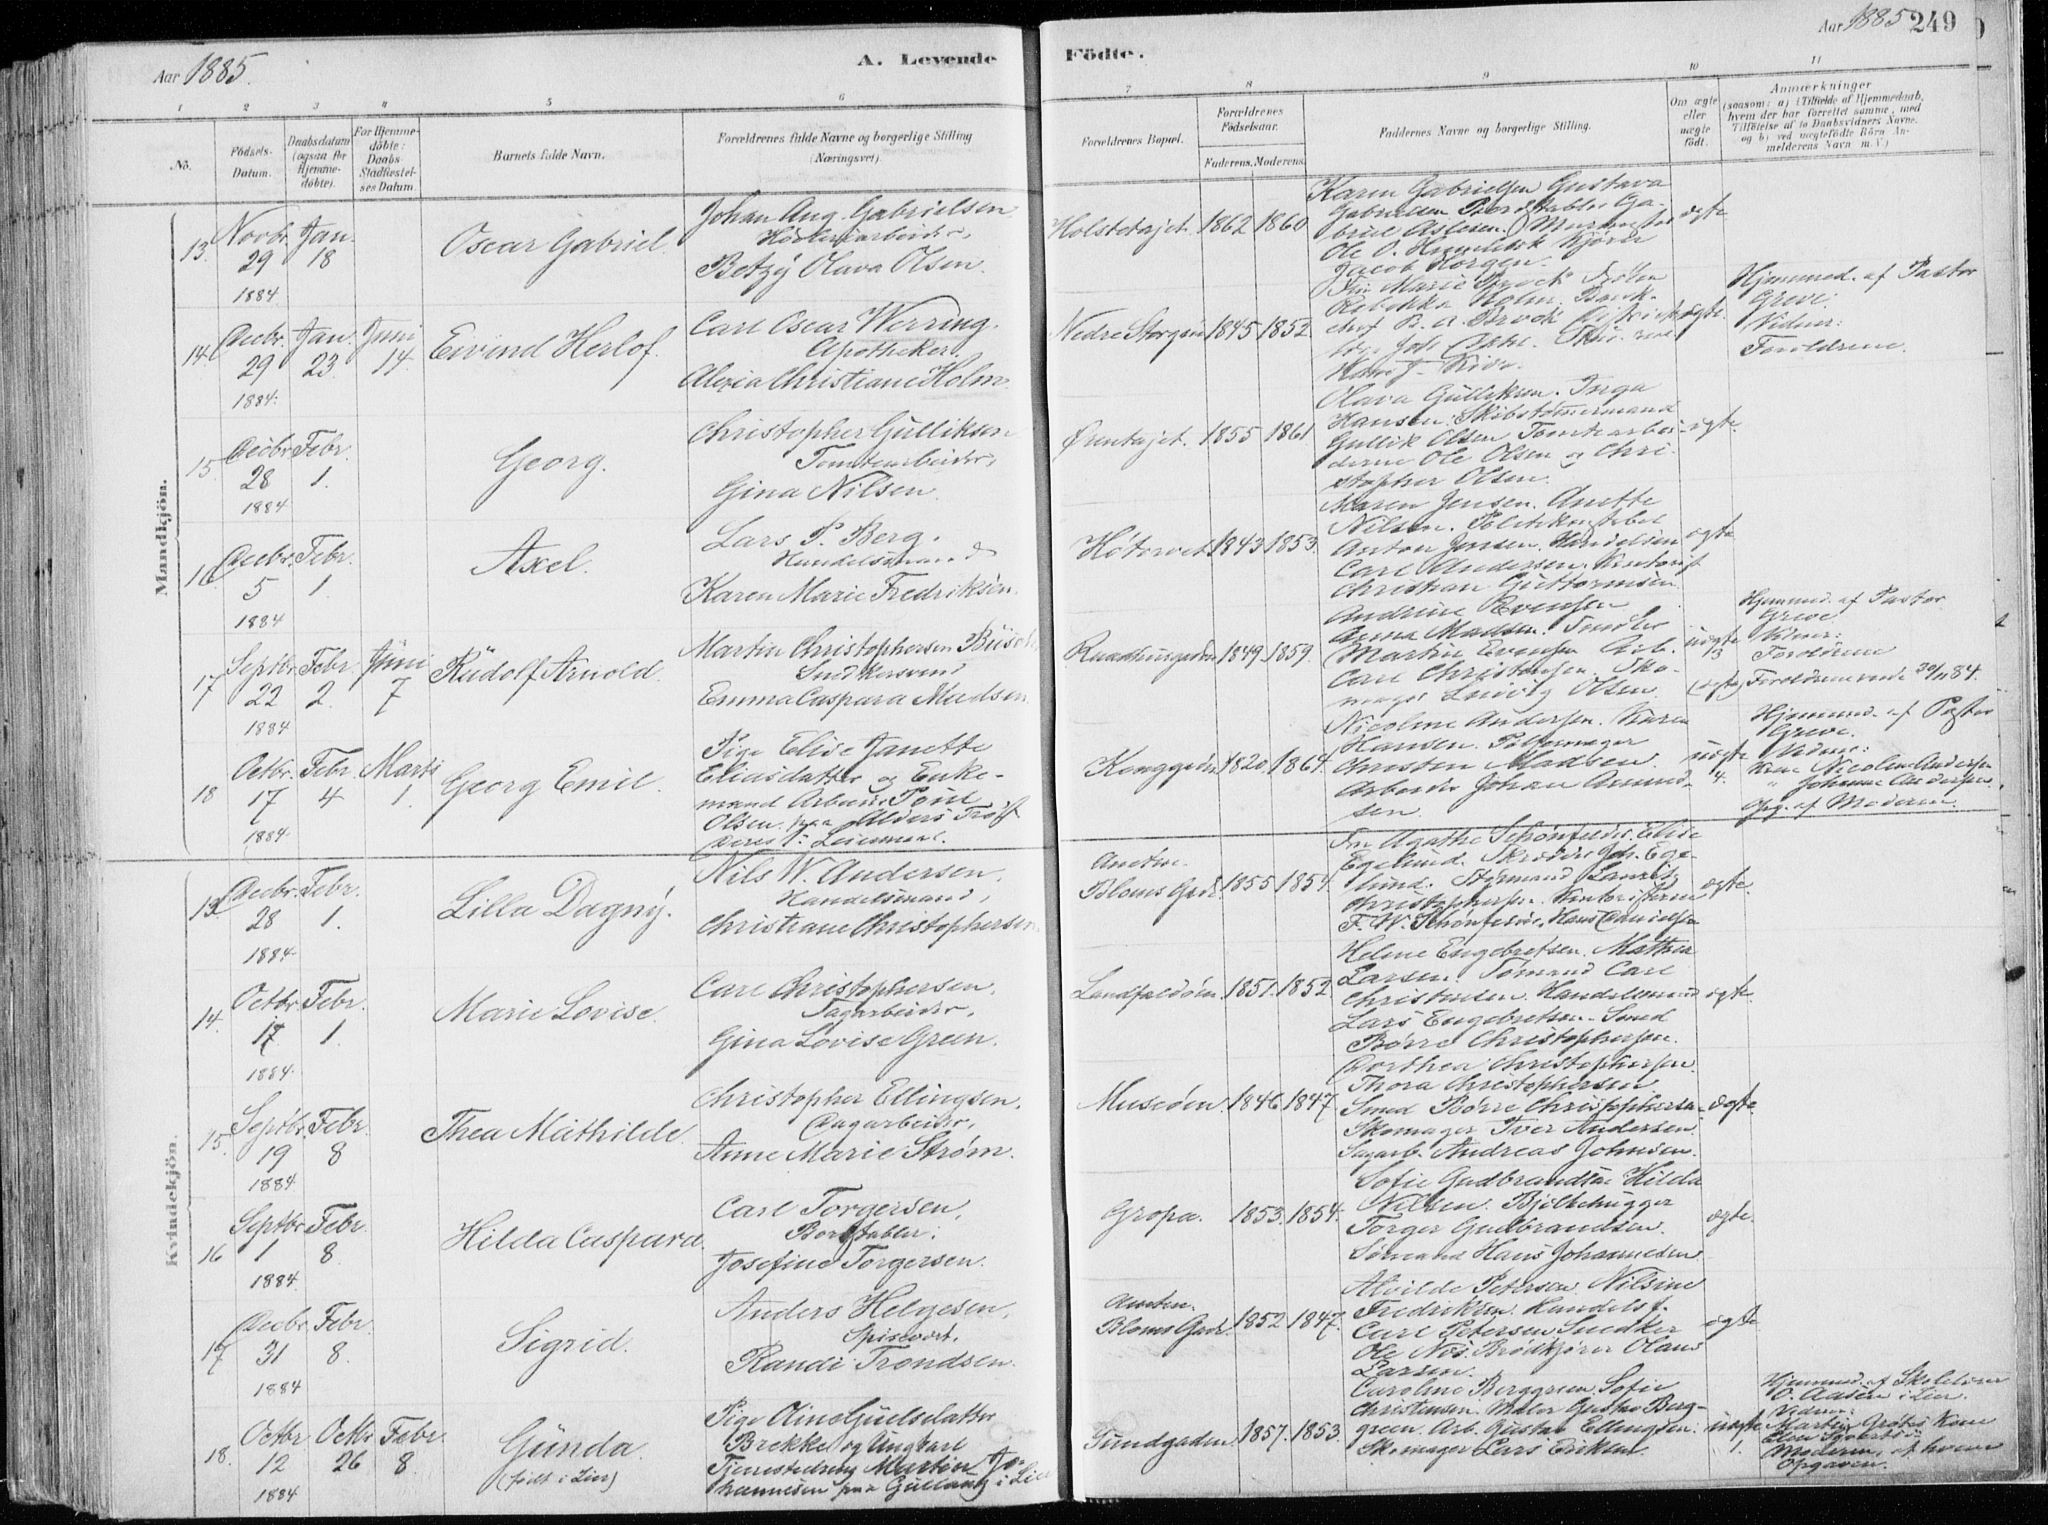 Aar 1885.
A. Levende
Födte.
Aar 1885
249
1 2 3 4 5 6 7 8 9 10 11
No.
Födsels-
Datum.
Daabsdatum
(ogsaa for
Hjemme-
döbte).
For Hjemme-
döbte:
Daabs-
Stadfæstel-
ses Datum.
Barnets fulde Navn.
Forældrenes fulde Navne og borgerlige Stilling
(Næringsvei).
Forældrenes Bopæl.
Forældrenes
Födselsaar.
Faderens. Moderens.
Faddernes Navne og borgerlige Stilling.
Om ægte
eller
uægte
födt.
Anmærkninger
(saasom: a) i Tilfælde af Hjemmedaab,
hvem der har forrettet samme, med
Tilföielse af to Daabsvidners Navne.
og b) ved uægtefödte Börn An-
melderens Navn m. V.)
Mandkjön.
13. Novbr. 29 1884 Jan. 18
Oscar Gabriel.
Johan Aug. Gabrielsen
Betzy Olava Olsen.
Holstetajet. 1862 1860
Karen Gabrielsen Gustava
Gabrielsen
Jacob Horgen.
ægte
14. Decbr. 29 1884. Jan. 23. Juni 14.
Eivind Herlof.
Carl Oscar Werring.
Apotheker,
Alexia Christiane Holm.
Nedre Storgade 1845 1852
Rebekka Holm.
ægte
Hjemmed. af Pastor
Greve.
Vidner:
Foroldrene.
15. Decbr. 28 1884 Febr. 1.
Georg.
Christopher Gulliksen
Tomtearbeider,
Gina Nilsen.
Ørentajet. 1855 1861
Olava Gulliksen. Inga
Hansen. Skibstømmermand
Gullik Olsen Tomtearbei-
derne Ole Olsen og Chri-
stopher Olsen.
ægte
16 Decbr. 5 1884 Febr. 1.
Axel.
Lars P. Berg.
Handelsmand
Karen Marie Fredriksen.
Høtorvet 1843 1853.
Maren Jensen. Anette
Nilsen. Politikonstabel
Anton Jensen. Handelsm
Carl Andersen. Kontorist
Christian Guttormsen
ægte
17 Septbr. 22 1884 Febr. 2. Juni 7
Rudolf Arnold.
Martin Christophersen
Snedkersvend
Emma Caspara Madsen
Raadhusgaden 1849 1859.
Andrine Evensen
Anna Madsen.
Martin Evensen Arb.
Carl Christensen. Sko-
mager Ludvig Olsen.
uægte
3
(ægte)
Hjemmed. af Pastor
Greve
Vidner:
Foroldrene
Foroldrene viede 30/11 84.
18 Octbr. 17 1884 Febr. 4 Marts 1.
Georg Emil.
Pige Elise Janette
Eliasdatter og Enke-
mand Arbeider Poul
Olsen.
Deres 1. Leiermaal.
Konggaden 1820 1864
Nicoline Andersen. Karen
Hansen. Pølsemager
Christen Madsen.
Arbeider Johan Amund-
sen.
uægte
4.
Hjemmed. af Pastor
Greve.
Vidner:
Kone Nicoline Andersen
" Johanne Andersen,
Opg. af Moderen.
Kvindekjön.
13. Decbr. 28 1884 Febr. 1.
Lilla Dagny.
Nils W. Andersen,
Handelsmand,
Christiane Christophersen.
Bloms Gade 1855 1854
Fru Agathe Schønfelder. Elise
Egelund. Skræder Joh. Ege-
lund. Styrmand Laurits
Christophersen. Kontoristerne
F. W. Schønfelder
ægte
14. Octbr. 17 1884 Febr. 1.
Marie Lovise.
Carl Christophersen,
Sagarbeider,
Gina Lovise Green.
Landfaldøen 1851. 1852.
Helene Engebretsen. Mathea
Larsen. Sømand Carl
Christensen. Handelsmand
Lars Engebretsen. Smed
Børre Christophersen.
ægte
15. Septbr. 19 1884 Febr. 8
Thea Mathilde.
Christopher Ellingsen,
Sagarbeider,
Anne Marie Strøm.
Museøen. 1846 1847
Dorthea Christophersen.
Thora Christophersen
Smed Børre Christophersen
Skomager Iver Andersen.
Sagarb. Andreas Johnsen.
ægte
16 Septbr. 1 1884. Febr. 8.
Hilda Caspara.
Carl Torgersen,
Bordstabler,
Josefine Torgersen.
Gropa. 1853. 1854.
Sofie Gudbrandsen Hilda
Nilsen. Bjelkehugger
Torger Gudbrandsen.
Sømand Hans Johannesen
ægte.
17 Decbr. 31 1884 Febr. 8.
Sigrid.
Anders Helgesen,
Spisevært.
Randi Trondsen.
Blomsgade 1852 1847.
Alvilde Petersen. Nilsine
Fredriksen. Handelsf.
Carl Petersen Snedker
Ole Næs. Brødkjører Olaus
Larsen.
ægte.
18. Octbr. 12 1884 Octbr. 26 Febr. 8
Gunda.
(født i Lier)
Pige Oline Gulsdatter
Brekke og Ungkarl
Tjenestedreng Martin Jo-
hannesen paa Gullaug i Lier
Sundgaden. 1857. 1853.
Caroline Berggreen. Sofie
Christensen. Maler Gustav Berg-
green. Arb. Gustav Ellingsen.
Skomager Lars Eriksen.
uægte
1.
Hjemmed. af Skolelærer
O. Aasen i Lier.
Vidner:
Moderen, af hvem
Opgaven.